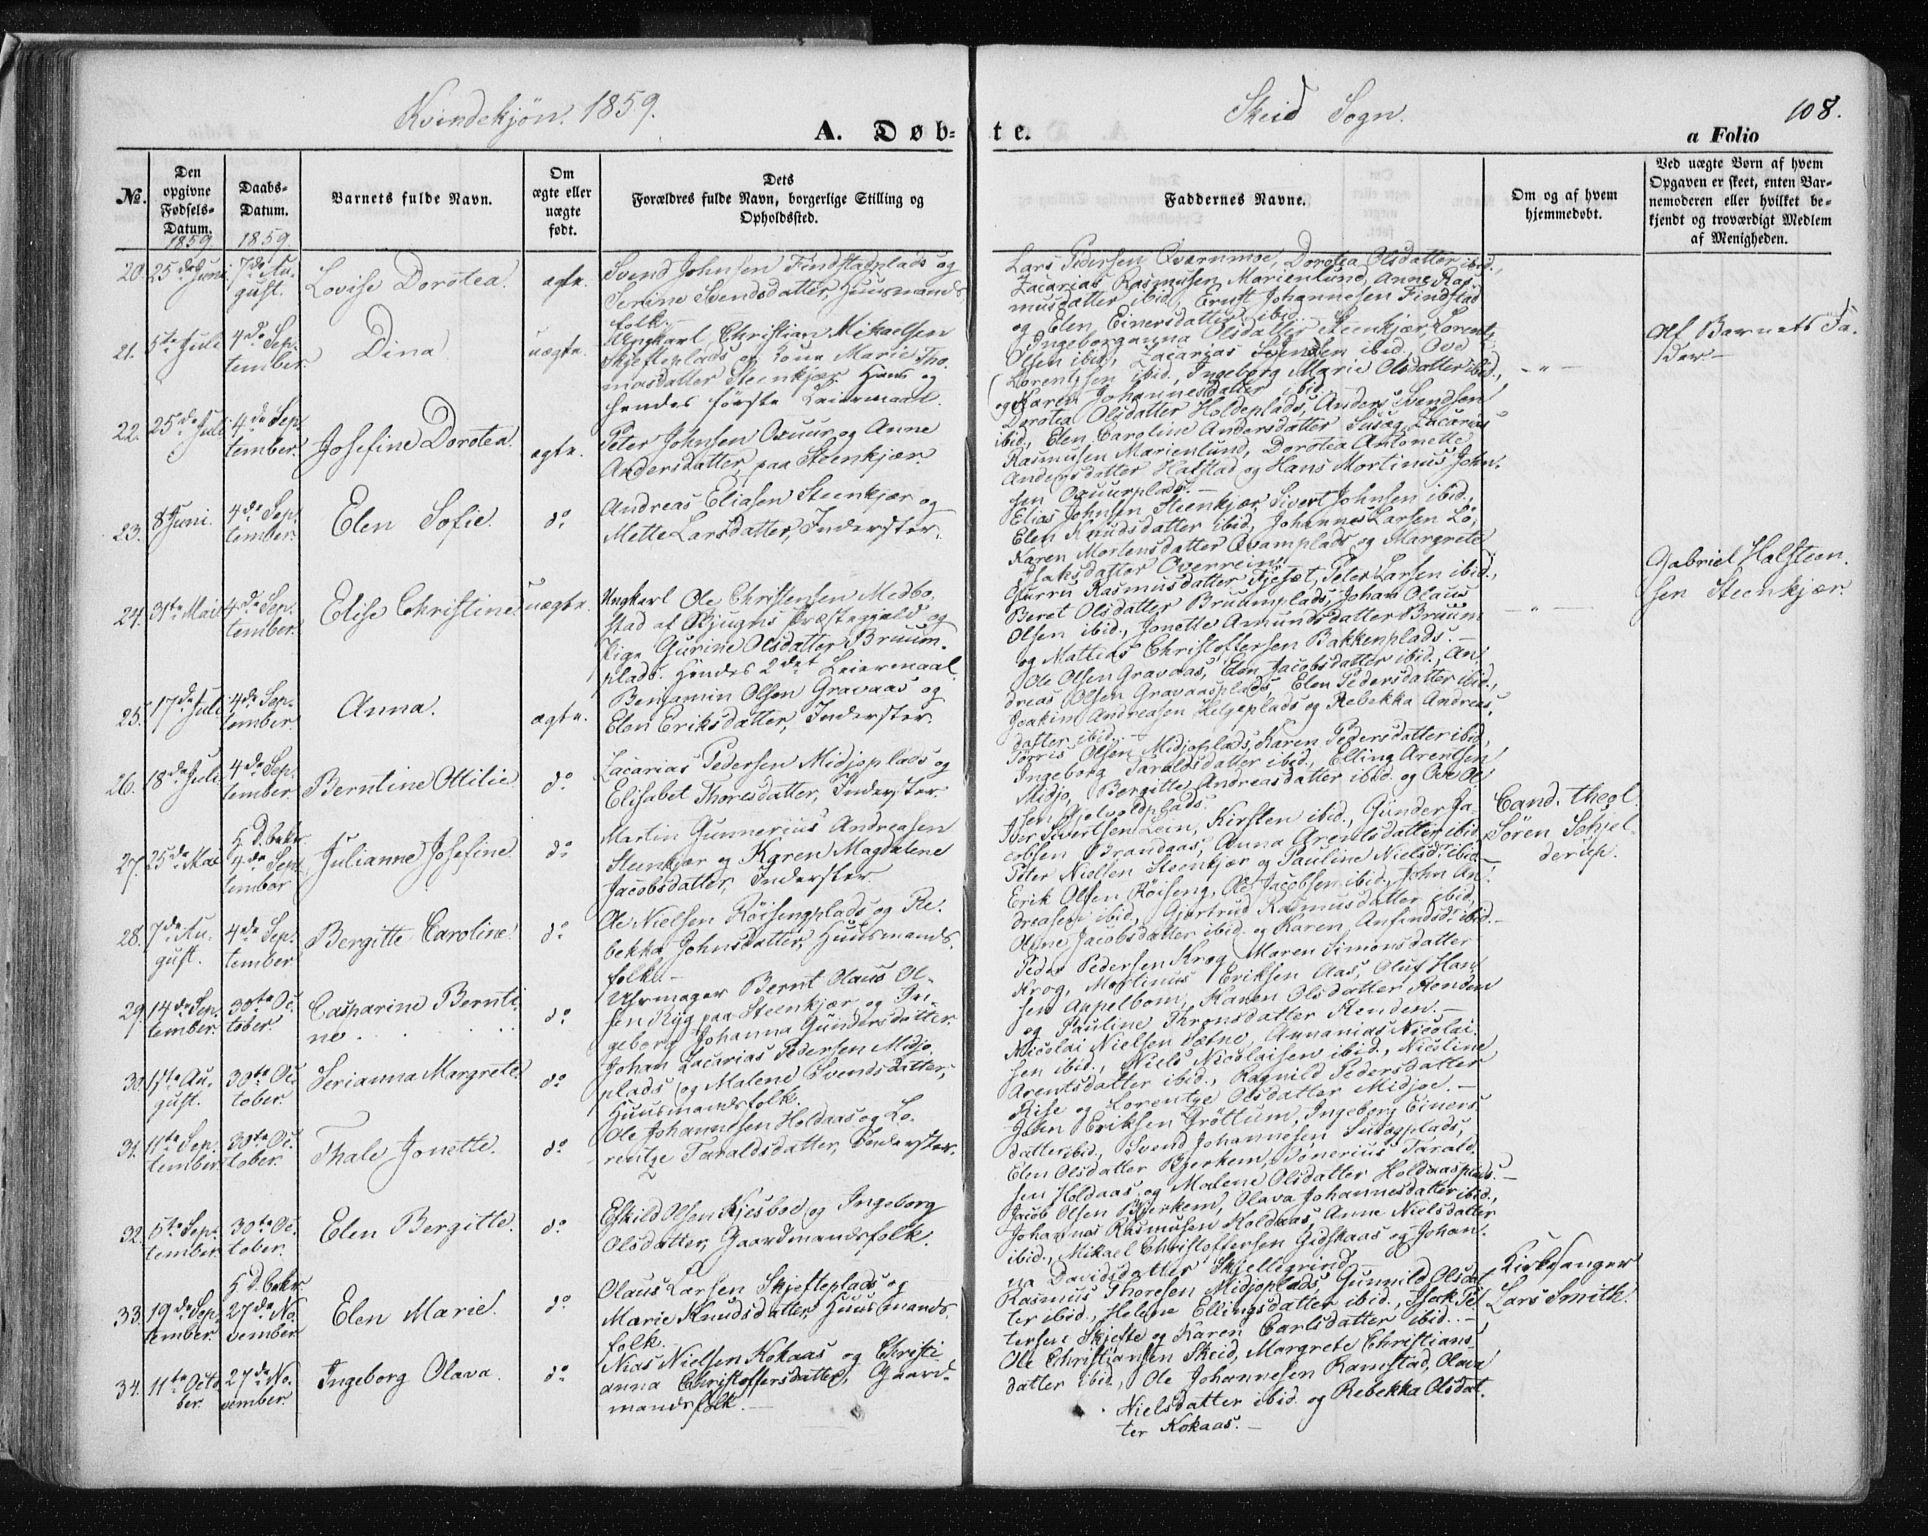 Kvindekjøn. 1859.
Skeid Sogn.
108.
A. Døb-
te.
a Folio
No.
Den
opgivne
Fødsels-
Datum.
Daabs-
Datum.
Barnets fulde Navn.
Om
ægte eller
uægte
født.
Dets
Forældres fulde Navn, borgerlige Stilling og
Opholdssted.
Faddernes Navne.
Om og af hvem
hjemmedøbt.
Ved uægte Børn af hvem
Opgaven er skeet, enten Bar-
nemoderen eller hvilket be-
kjendt og troværdigt Medlem
af Menigheden.
1859
1859.
20.
25de Juni
7de Au-
gust.
Lovise Dorotea.
ægte.
Svend Johnsen Findstadplads og
Serine Svendsdatter, Huusmands-
folk.-
Lars Pedersen Overnmoe, Dorotea Olsdatter ibid.,
Zacarias Rasmusen Marienlund, Anne Ras-
musdatter ibid., Ernst Johannesen Findstad
og Elen Einersdatter ibid.
21.
5te Juli
4de Sep-
tember.
Dina
uægte.
Ungkarl Christian Mikaelsen
Skjefteplads og Lova Marie Tho-
masdatter Steenkjær. Hans og
hendes første Leiermaal.
Ingeborganna Olsdatter Steenkjær, Lorents
Olsen ibid., Zacarias Svendsen ibid., Ove
Lorentsen ibid., Ingeborg Marie Olsdatter ibid.,
og Karen Johannesdatter ibid.
- " -
Af Barnets Fa-
der-
22.
25de Juli
4de Sep-
tember.
Josefine Dorotea.
ægte.
Peter Johnsen Oxuur og Anne
Andersdatter paa Steenkjær.
Dorotea Olsdatter Holdeplads, Anders Svendsen
ibid., Elen Caroline Andersdatter Susæg, Zacarias
Rasmusen Marienlund, Dorotea Antonette
Andersdatter Halstad og Hans Mortinus John-
sen Oxuurplads.-
23.
8 Juni.
4de Sep-
tember.
Elen Sofie
do
Andreas Eliasen Steenkjær og
Mette Larsdatter, Inderster.
Elias Johnsen Steenkjær, Sivert Johnsen ibid.,
Elen Knudsdatter ibid., Johannes Larsen Lø,
Karen Mortensdatter Qvamplads og Margrete
Isaksdatter Overrein.
24.
31te Mai
4de Sep-
tember.
Elise Christine
uægte.
Ungkarl Ole Christensen Medbo-
stad af Bjugns Præstegjeld og
Pige Gurine Olsdatter Bruum-
plads. Hendes 2det Leiermaal.
Gurru Rasmusdatter Fjesæt, Peter Larsen ibid.,
Beret Olsdatter Bruumplads, Johan Olaus
Olsen ibid., Jonette Amundsdatter Bruum
og Mattias Christoffersen Bakkenplads.-
- " -
Gabriel Halsteen-
sen Steenkjær.
25.
17de Juli
4de Sep-
tember.
Anna.
ægte.
Benjamin Olsen Gravaas og
Elen Eriksdatter, Inderster.
Ole Olsen Gravaas, Elen Jacobsdatter ibid., An-
dreas Olsen Gravaasplads, Elen Pedersdatter ibid.,
Joakim Andreasen Helgeplads og Rebekka Andreas-
datter ibid.-
26.
18de Juli
4de Sep-
tember.
Berntine Ottilie
do
Zacarias Pedersen Midjoplads og
Elisabet Thoresdatter, Inderster.
Torris Olsen Midjoplads, Karen Pedersdatter ibid.,
Ingeborg Taraldsdatter ibid., Elling Arentsen
Midjo, Bergitte Andreasdatter ibid. og Ove Ol-
sen Hjelvoldplads.
27.
25de Mai
H. D. bekr.
4de Sep-
tember
Julianne Josefine
do
Martin Gunnerius Andreasen
Steenkjær og Karen Magdalene
Jacobsdatter, Inderster.
Iver Sivertsen Lein, Kirsten ibid., Gunder Ja-
cobsen Brandaas, Anna Arentsdatter ibid.,
Peter Nielsen Steenkjær og Pauline Nielsdr. ibid.-
Cand. theol.
Sören Schjel-
derup.
28.
7de Au-
gust.
4de Sep-
tember
Bergitte Caroline.
do
Ole Nielsen Röisengplads og Re-
bekka Johnsdatter, Huusmands-
folk.-
Erik Olsen Röiseng, Ole Jacobsen ibid., John An-
dreasen ibid., Gjertrud Rasmusdatter ibid.,
Oline Jacobsdatter ibid. og Karen Anfindsdr. ibid.-
29.
14de Sep-
tember.
30te Oc-
tober.
Catharine Bernti-
ne.
do
Uhrmager Bernt Olaus Ol-
sen Ryg paa Steenkjær og In-
geborg Johanna Gundersdatter.
Peder Pedersen Krog, Maren Simonsdatter
Krog, Martinus Eriksen Aas, Oluf Han-
sen Appelbom, Karen Olsdatter Henden
og Pauline Thronsdatter Henden.-
30.
17te Au-
gust.
30te Oc-
tober.
Serianna Margrete.
do
Johan Zacarias Pedersen Midjo-
plads og Malene Svendsdatter,
Huusmandsfolk.
Nicolai Nielsen Sætne, Annanias Nicolai-
sen ibid., Niels Nicolaisen ibid., Nicoline
Arentsdatter ibid., Ragnild Pedersdatter
Rise og Lorentze Olsdatter Midjoe.-
31.
11te Sep-
tember.
30te Oc-
tober.
Thale Jonette.
do
Ole Johannesen Holdaas og Lo-
rentze Taraldsdatter, Inderster.
John Eriksen Gröttum, Ingeborg Einers-
datter ibid., Svend Johannesen Susægplads,
Elen Olsdatter Bjerkem, Tönerius Tarald-
sen Holdaas og Malene Olsdatter Holdaasplads.-
32.
5te Sep-
tember.
30te Oc-
tober.
Elen Bergitte.
do
Eskild Olsen Kjesboe og Ingeborg
Olsdatter, Gaardmandsfolk.
Jacob Olsen Bjerkem, Olava Johannesdatter ibid.,
Johannes Rasmusen Holdaas, Anne Nielsdatter
ibid., Mikael Christoffersen Gidskaas og Johan-
na Davidsdatter Skjellegrind.
33.
19de Sep-
tember.
H. D. bekr.
27de No-
vember.
Elen Marie.
do
Olaus Larsen Skjefteplads og
Marie Knudsdatter, Huusmands-
folk.
Rasmus Thoresen Midjoplads, Gunnild Olsdat-
ter ibid., Helene Ellingsdatter ibid., Isak Pet-
tersen Skjefte og Karen Carlsdatter ibid.-
Kirkesanger
Lars Smith.
34.
11te Octo-
ber.
27de No-
vember.
Ingeborg Olava.
do
Nias Nielsen Kokaas og Christi-
anna Christoffersdatter, Gaard-
mandsfolk.-
Ole Christiansen Skeid, Margrete Christians-
datter ibid., Ole Johannesen Ramstad, Olava
Nielsdatter ibid. og Rebekka Olsdat-
ter Kokaas.-